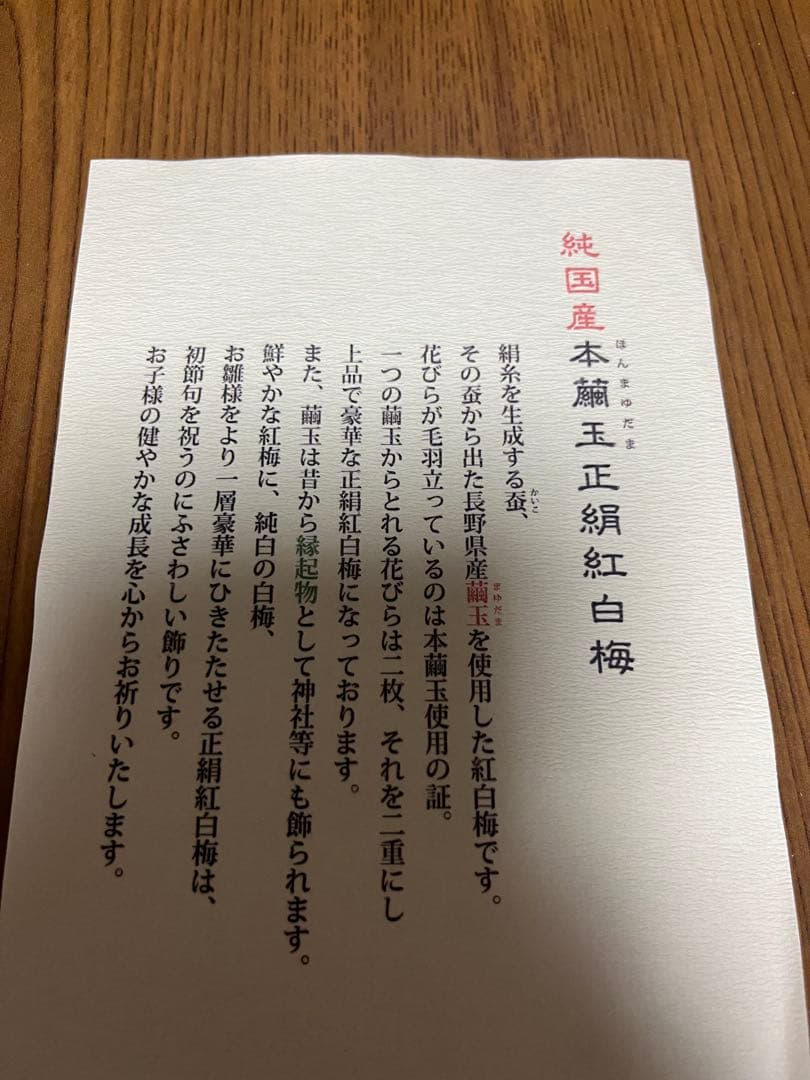 純国産本繭玉正絹紅白梅
ほんまゆだま
絹糸を生成する蚕、
かいこ
その蚕から出た長野県産繭玉を使用した紅白梅です。
まゆだま
花びらが毛羽立っているのは本繭玉使用の証。
一つの繭玉からとれる花びらは二枚、それを二重にし
上品で豪華な正絹紅白梅になっております。
また、繭玉は昔から縁起物として神社等にも飾られます。
鮮やかな紅梅に、純白の白梅、
お雛様をより一層豪華にひきたたせる正絹紅白梅は、
初節句を祝うのにふさわしい飾りです。
お子様の健やかな成長を心からお祈りいたします。